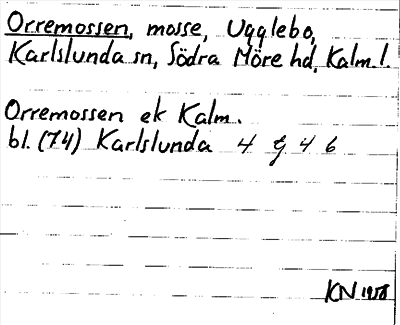 Orremossen, mosse, Ugglebo,
Karlslunda sn, Södra Möre hd, Kalm. l.
Orremossen ek Kalm.
bl. (74) Karlslunda 4 g 4 6
KN 1958